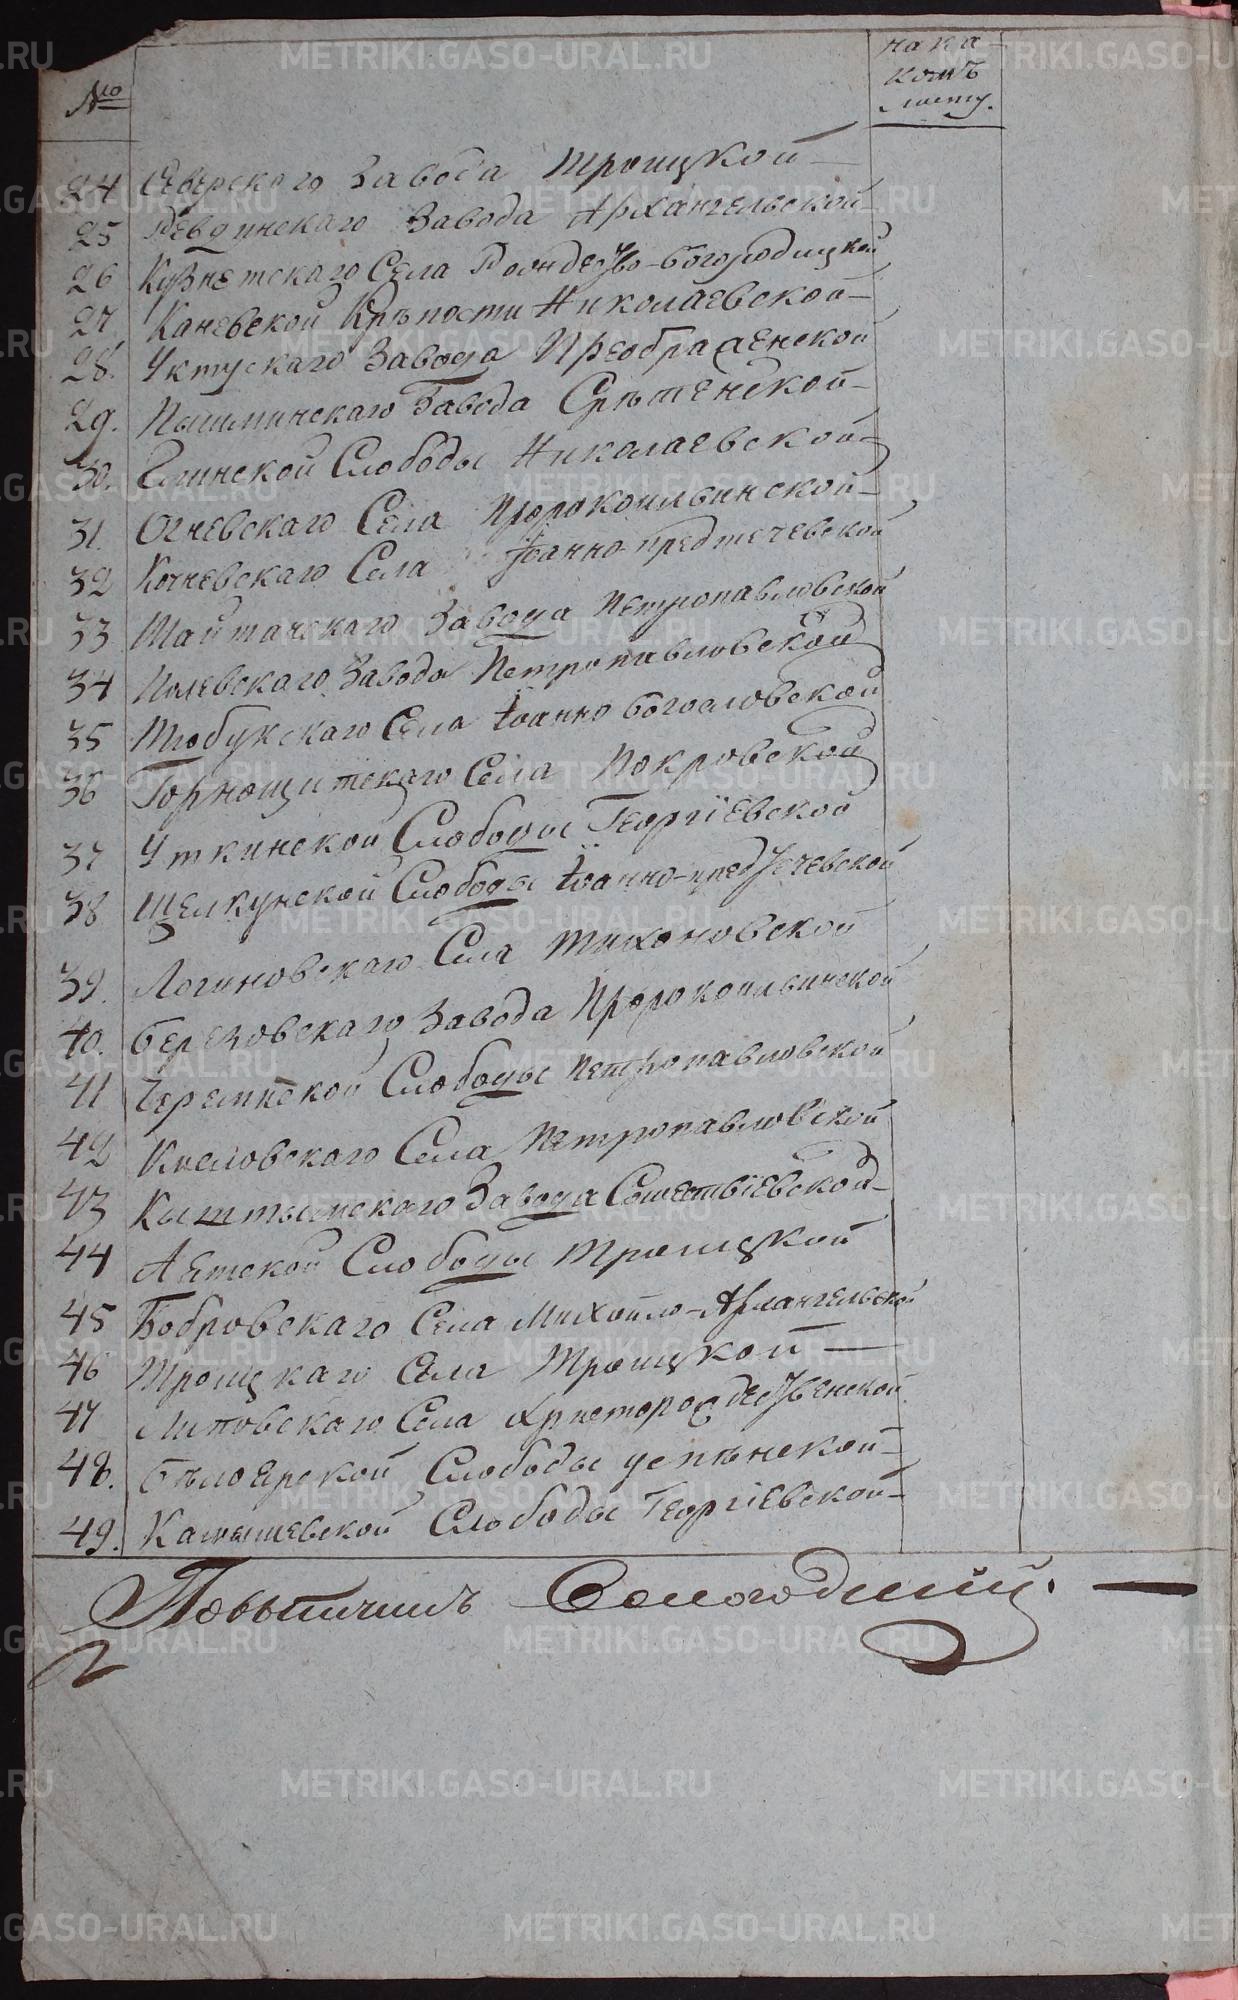 №
на ка
комъ
листу.
24 Северскаго Завода Троицкой
25 Ревдинскаго Завода Архангельской
26 Кузнетскаго Села Рождество-Богородицкой
27 Каневской Крѣпости Николаевской
28. Уктускаго Завода Преображенской
29. Пышминскаго Завода Срѣтенской
30. Глинской Слободы Николаевской
31. Огневскаго Села Пророкоильинской
32 Кочневскаго Села Іоанно-предтечевской
33 Шайтанскаго Завода Петропавловской
34 Полевскаго Завода Петропавловской
35 Тюбукскаго Села Іоанно Богословской
36 Горнощитскаго Села Покровской
37 Уткинской Слободы Георгіевской
38 Щелкунской Слободы Іоанно-предтечевской
39. Логиновскаго Села Тихоновской
40. Березовскаго Завода Пророкоильинской
41 Черемиской Слободы Петропавловской
42 Кисловскаго Села Петропавловской
43 Кыштымскаго Завода Сошествіевской
44 Аятской Слободы Троицкой
45 Бобровскаго Села Михайло-Архангельской
46 Троицкаго Села Троицкой
47 Липовскаго Села Христорождественской
48. Бѣлоярской Слободы успѣнской
49. Камышевской Слободы Георгіевской
Повытчикъ
METRIKI.GASO-URAL.RU